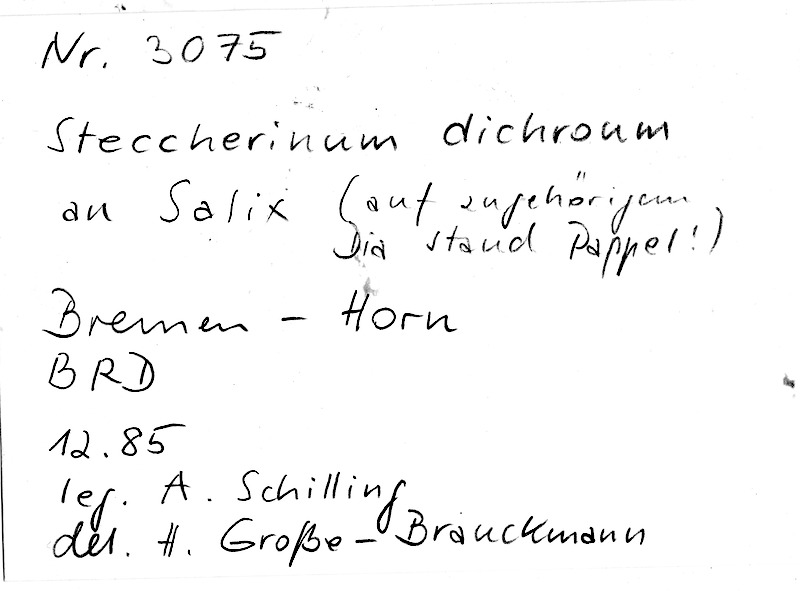 Nr. 3075
Steccherinum dichroum
an Salix (auf zugehörigem
Dia stand Pappel!)
Bremen - Horn
BRD
12.85
leg. A. Schilling
det. H. Große-Brauckmann